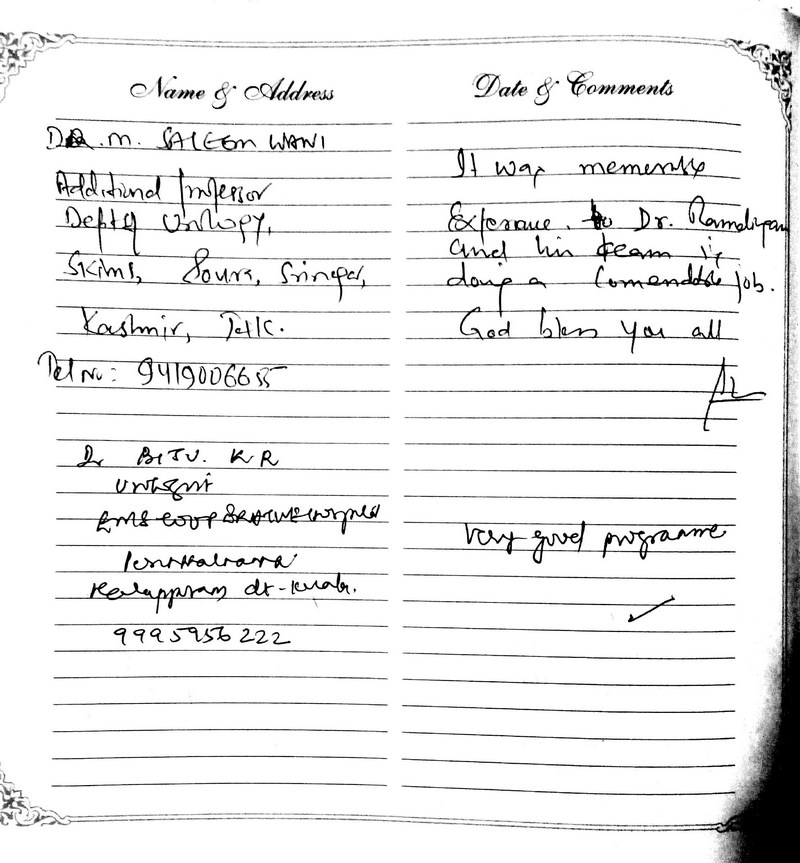 Name & Address
DR. M. SALEEM WANI
Additional Professor
Dept of Urology,
Skims, Soura, Srinagar,
Kashmir, J&K.
Tel No: 9419006655
Dr BIJU. K R
Urologist
EMS COOPERATIVE Hospital
Perinthalmanna
dt - Kerala.
9995956222
Date & Comments
It was
Experience. Dr. Ramalingam
and his team is
doing a job.
God bless you all
Very good programme